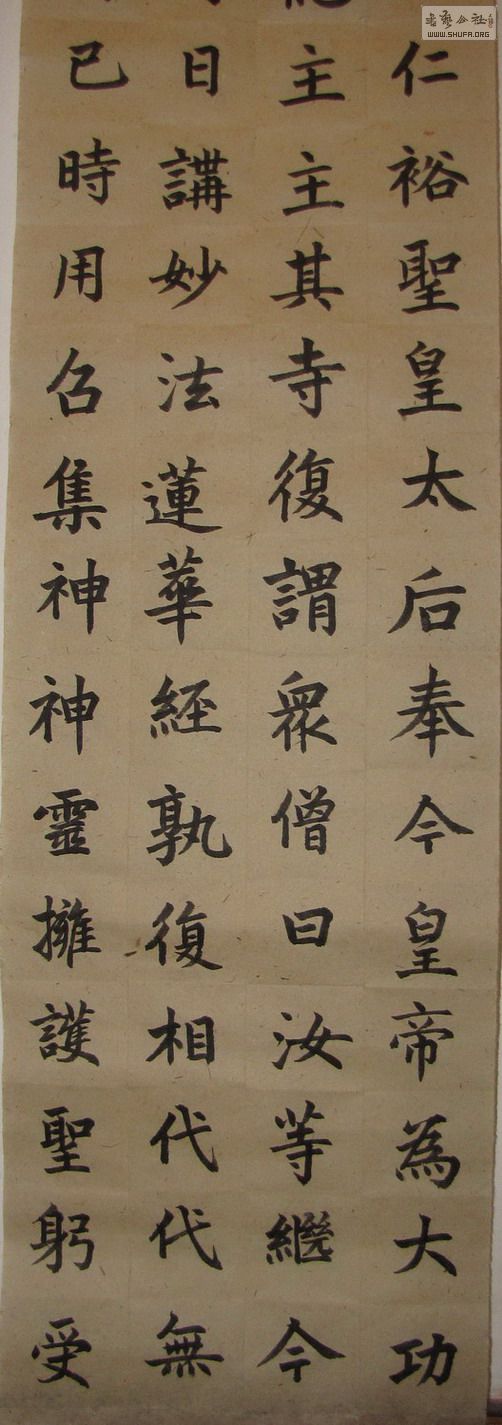 仁裕聖皇太后奉今皇帝為大功
主主其寺復謂衆僧曰汝等繼今
日講妙法蓮華經孰復相代代無
已時用召集神神靈擁護聖躬受
書藝公社
WWW.SHUFA.ORG